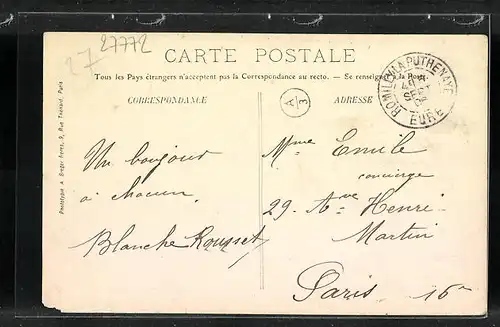 27
27772
CARTE POSTALE
Tous les Pays étrangers n'acceptent pas la Correspondance au recto. — Se renseigner à la Poste
CORRESPONDANCE
A
3
ADRESSE
ROMILLY-LA-PUTHENAYE
EURE
Phototypie A. Breger frères, 9, Rue Thénard, Paris
Un bonjour
à chacun.
Blanche Rousset
Mme Emile
concierge
29. Ave Henri-
Martin
Paris 16e